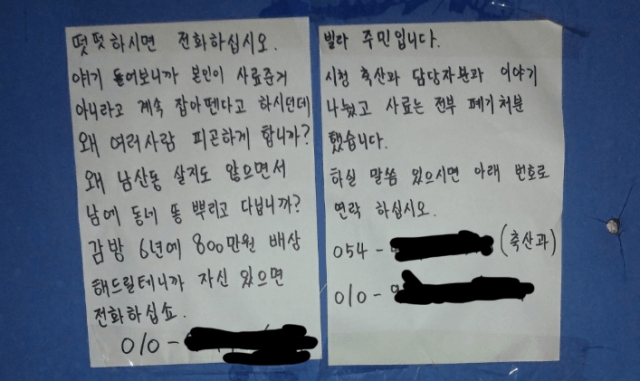 떳떳하시면 전화하십시오.
얘기 들어보니까 본인이 사료준거
아니라고 계속 잡아뗀다고 하시던데
왜 여러사람 피곤하게 합니까?
왜 남산동 살지도 않으면서
남에 동네 똥 뿌리고 다닙니까?
감방 6년에 800만원 배상
해드릴테니까 자신 있으면
전화하십쇼.
010-
빌라 주민입니다.
시청 축산과 담당자분과 이야기
나눴고 사료는 전부 폐기처분
했습니다.
하실 말씀 있으시면 아래 번호로
연락 하십시오.
054- (축산과)
010-